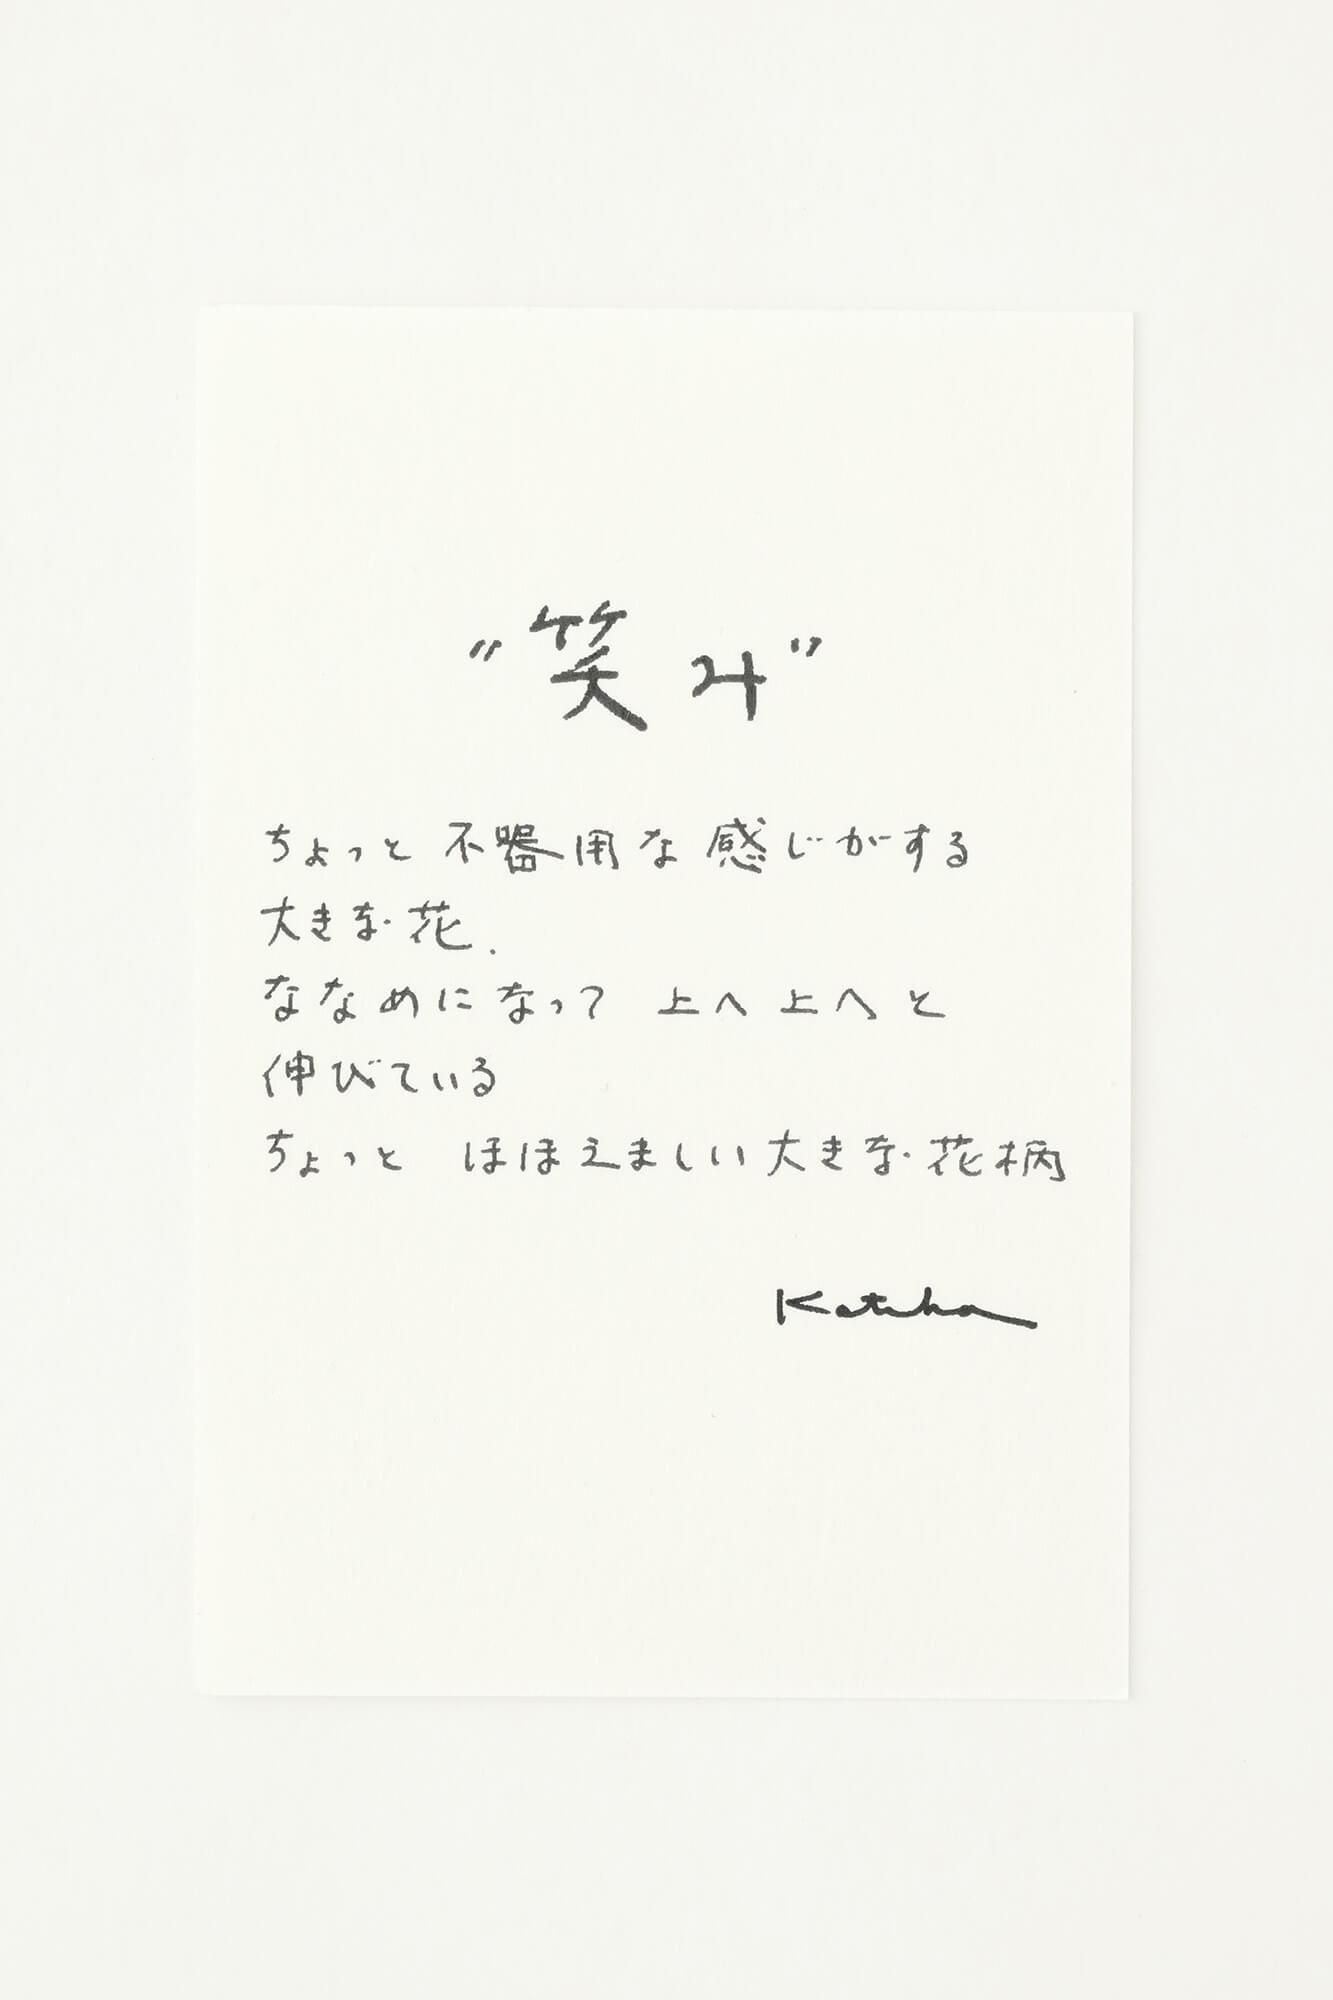 "笑み"
ちょっと 不器用な感じがする
大きな花.
ななめになって 上へ上へと
伸びている
ちょっと ほほえましい大きな花柄